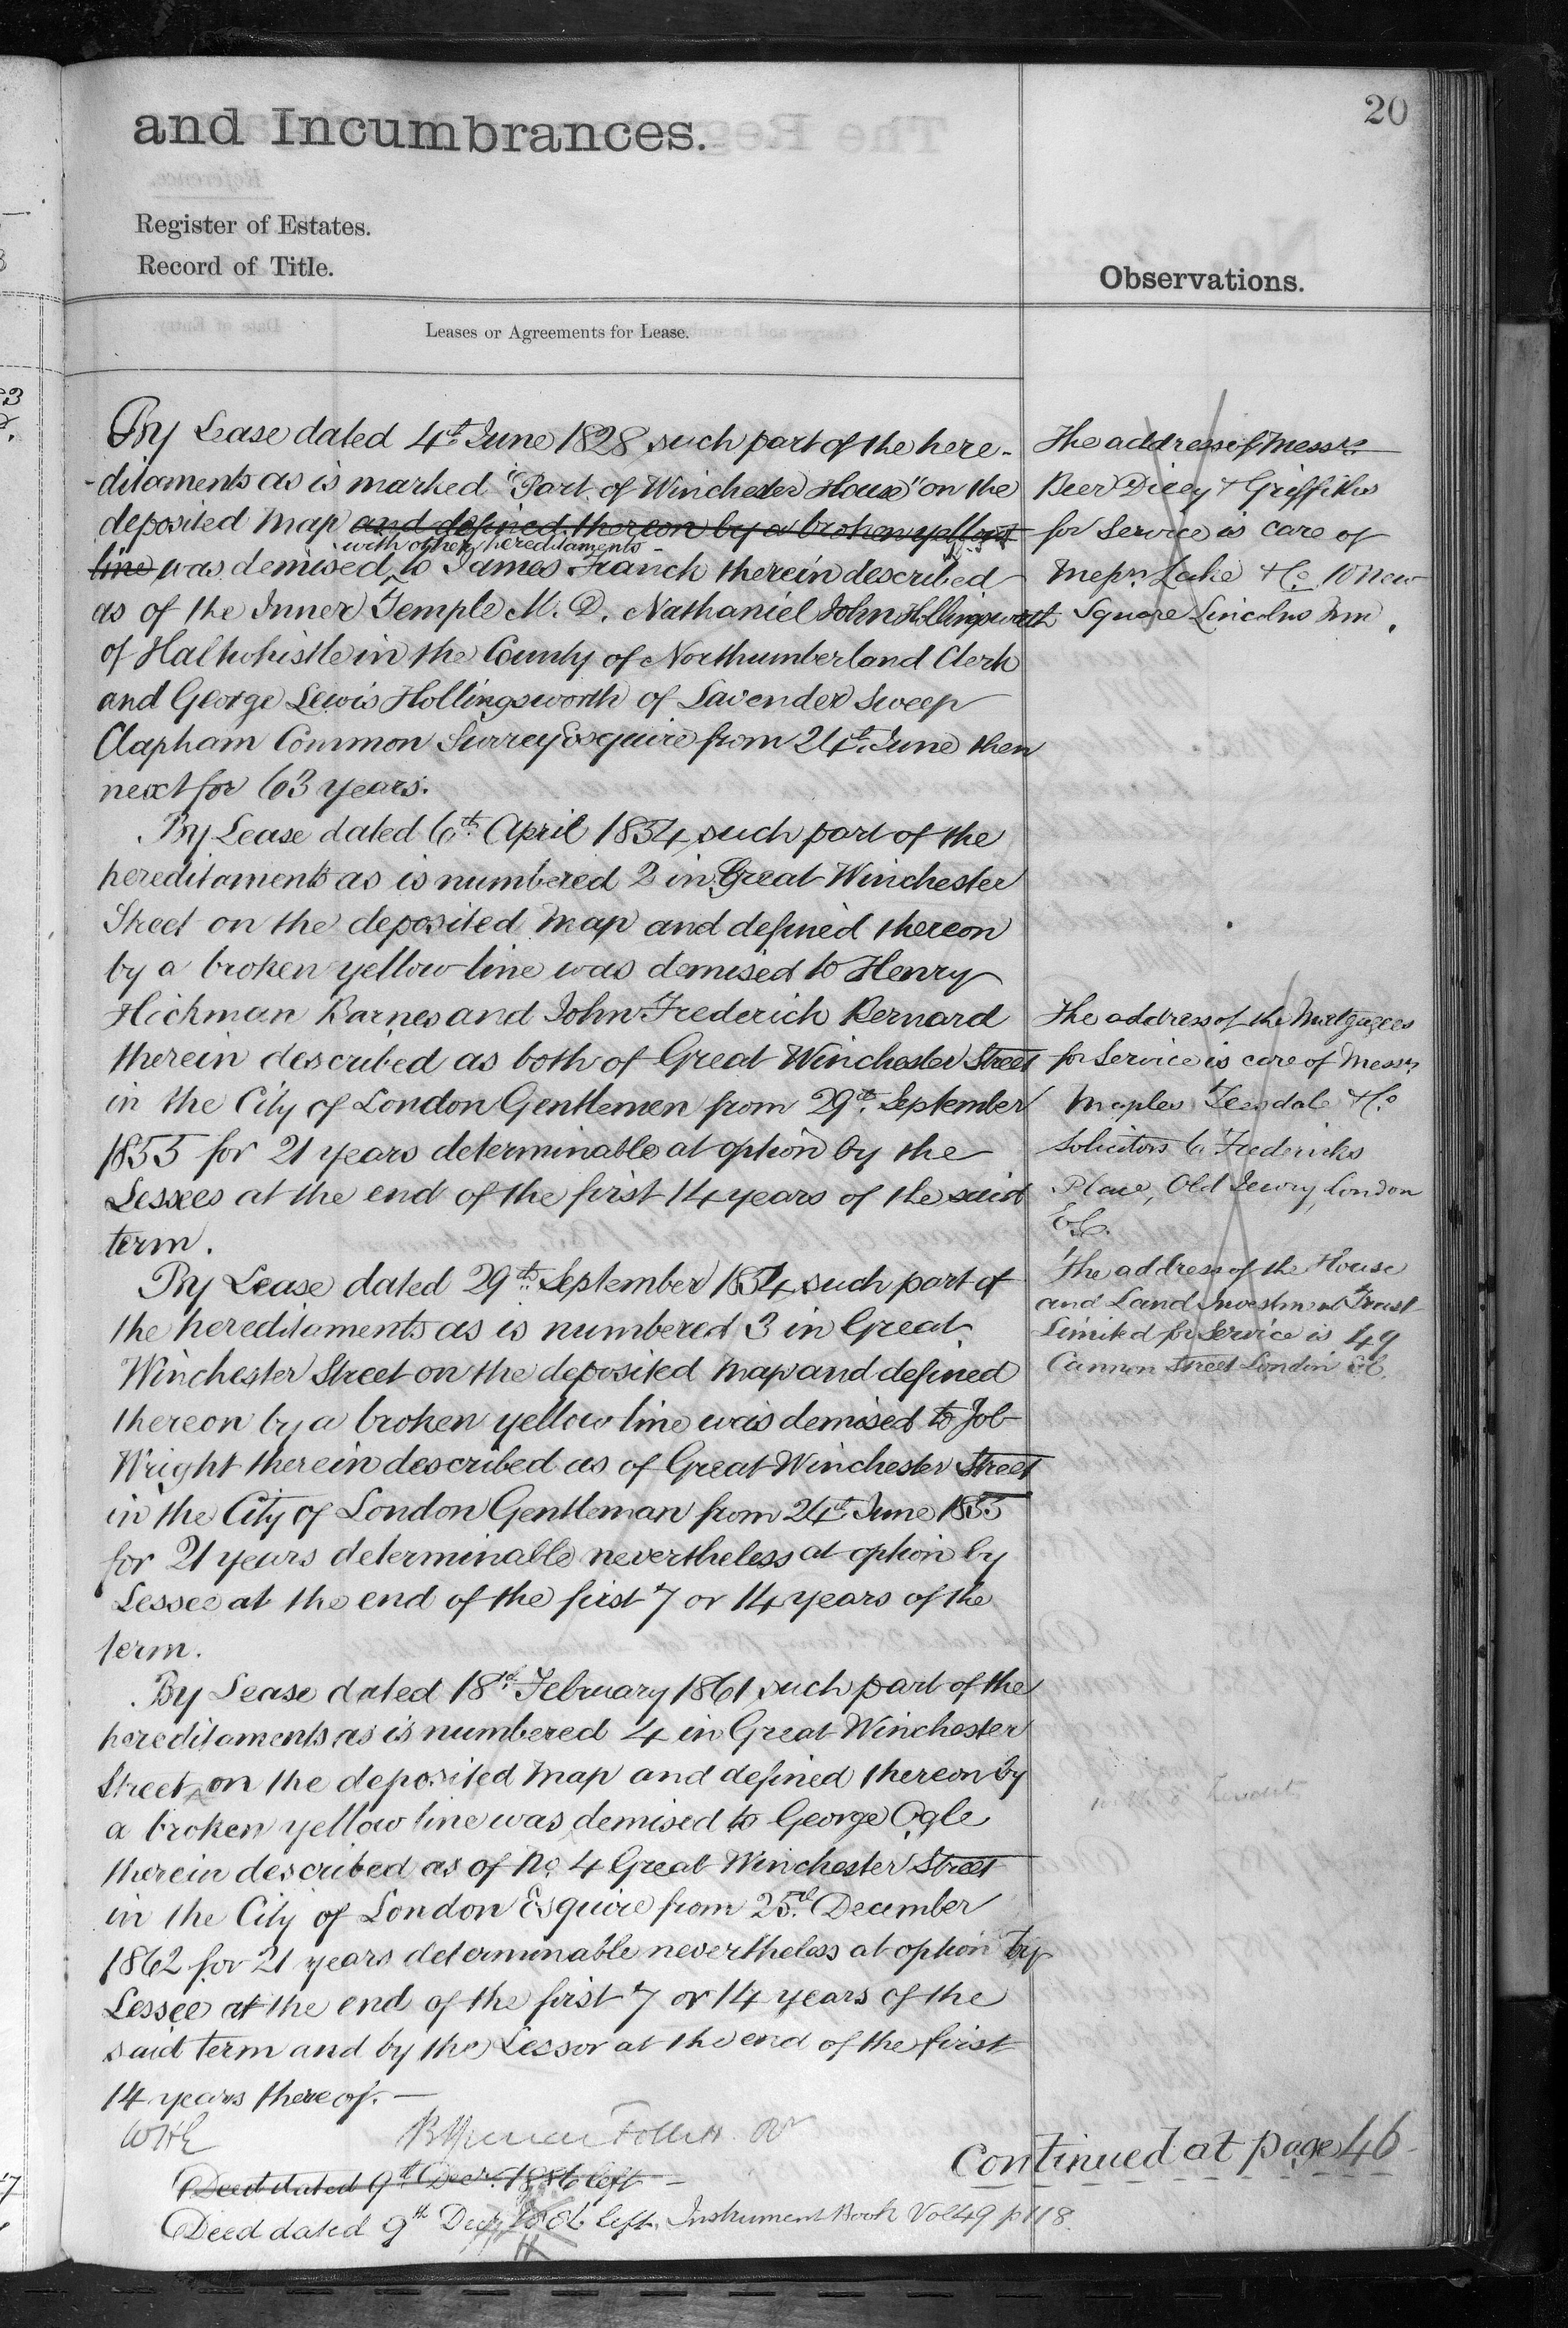 20
and Incumbrances.
Register of Estates.
Record of Title.
Observations.
Leases or Agreements for Lease.
By Lease dated 4th June 1828 such part of the here-
-ditaments as is marked "Part of Winchester House" on the
deposited Map and defined thereon by a broken yellow
line was demised with other hereditaments to James Franck therein described
as of the Inner Temple M.D. Nathaniel John Hollingsworth
of Haltwhistle in the County of Northumberland Clerk
and George Lewis Hollingsworth of Lavender Sweep
Clapham Common Surrey Esquire from 24th June then
next for 63 years.
By Lease dated 6th April 1854 such part of the
hereditaments as is numbered 2 in Great Winchester
Street on the deposited Map and defined thereon
by a broken yellow line was demised to Henry
Hickman Barnes and John Frederick Bernard
therein described as both of Great Winchester Street
in the City of London Gentlemen from 29th September
1855 for 21 years determinable at option by the
Lessees at the end of the first 14 years of the said
term.
By Lease dated 29th September 1854 such part of
the hereditaments as is numbered 3 in Great
Winchester Street on the deposited Map and defined
thereon by a broken yellow line was demised to Job
Wright therein described as of Great Winchester Street
in the City of London Gentleman from 24th June 1855
for 21 years determinable nevertheless at option by
Lessee at the end of the first 7 or 14 years of the
term.
By Lease dated 18th February 1861 such part of the
hereditaments as is numbered 4 in Great Winchester
Street on the deposited Map and defined thereon by
a broken yellow line was demised to George Ogle
therein described as of No 4 Great Winchester Street
in the City of London Esquire from 25th December
1862 for 21 years determinable nevertheless at option by
Lessee at the end of the first 7 or 14 years of the
said term and by the Lessor at the end of the first
14 years thereof.
Deed dated 9th Decr. 1886 left
Deed dated 9th Decr 1886 left. Instrument Book Vol 49 p 118
The address of Messrs
Beer Dicey & Griffiths
for Service is care of
Messrs Lake & Co. 10 New
Square Lincolns Inn.
The address of the Mortgagees
for Service is care of Messrs
Maples Teesdale & Co
Solicitors 6 Fredericks
Place, Old Jewry, London
E.C.
The address of the House
and Land Investment Trust
Limited for Service is 49
Cannon Street London E.C.
Continued at page 46